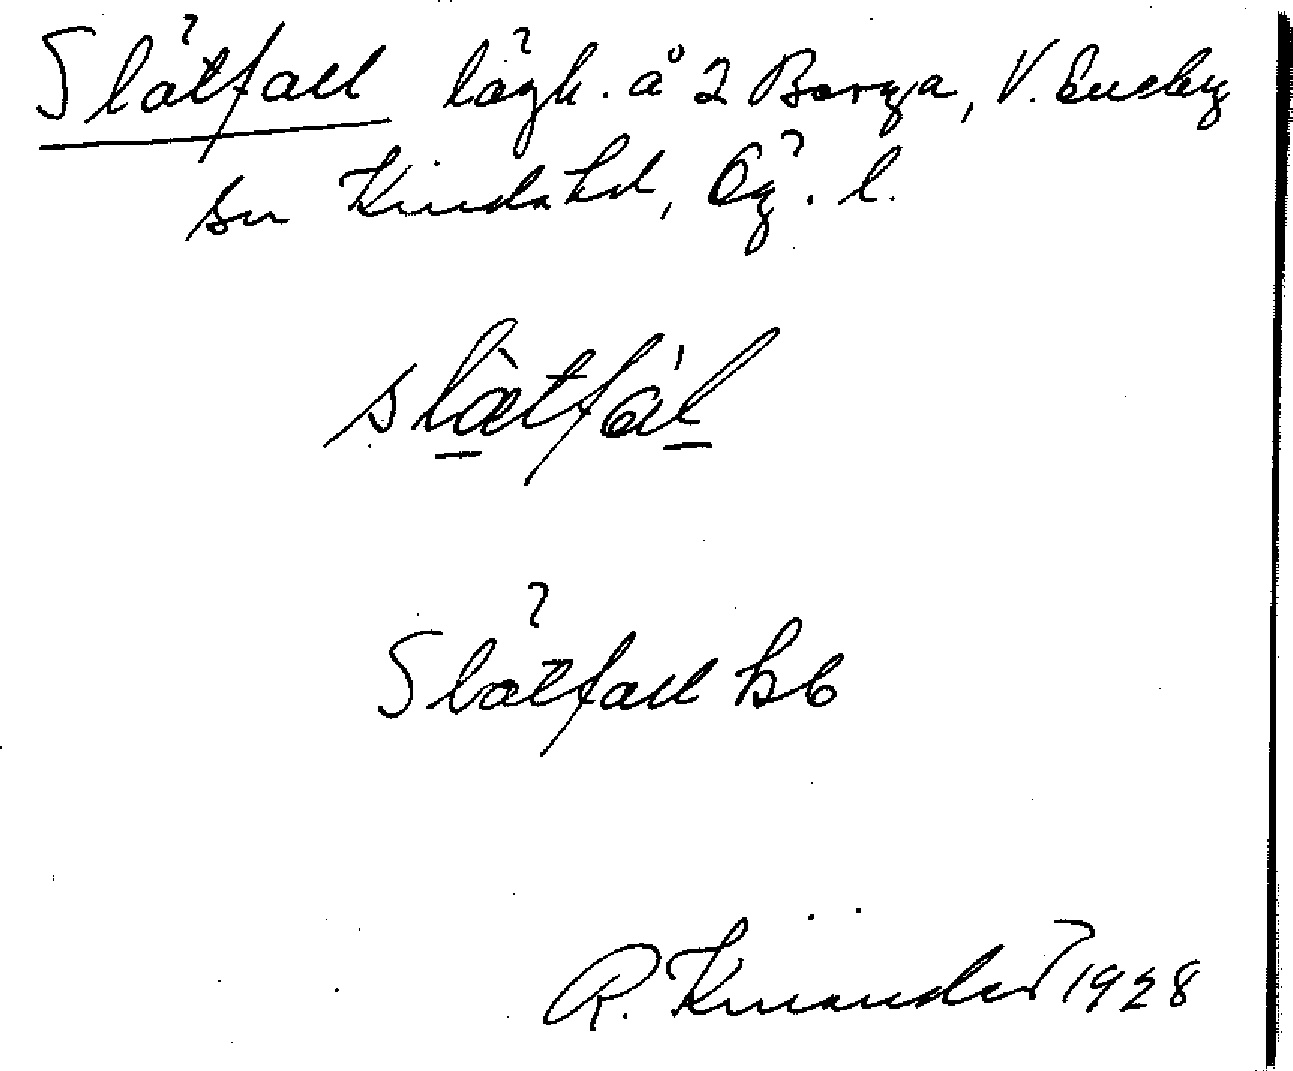 Slätfall lägh. å 2 Borga, V. Eneby
sn Kinda hd, Ög. l.
slæ̀tfál
Slätfall hb
R. Kinander 1928